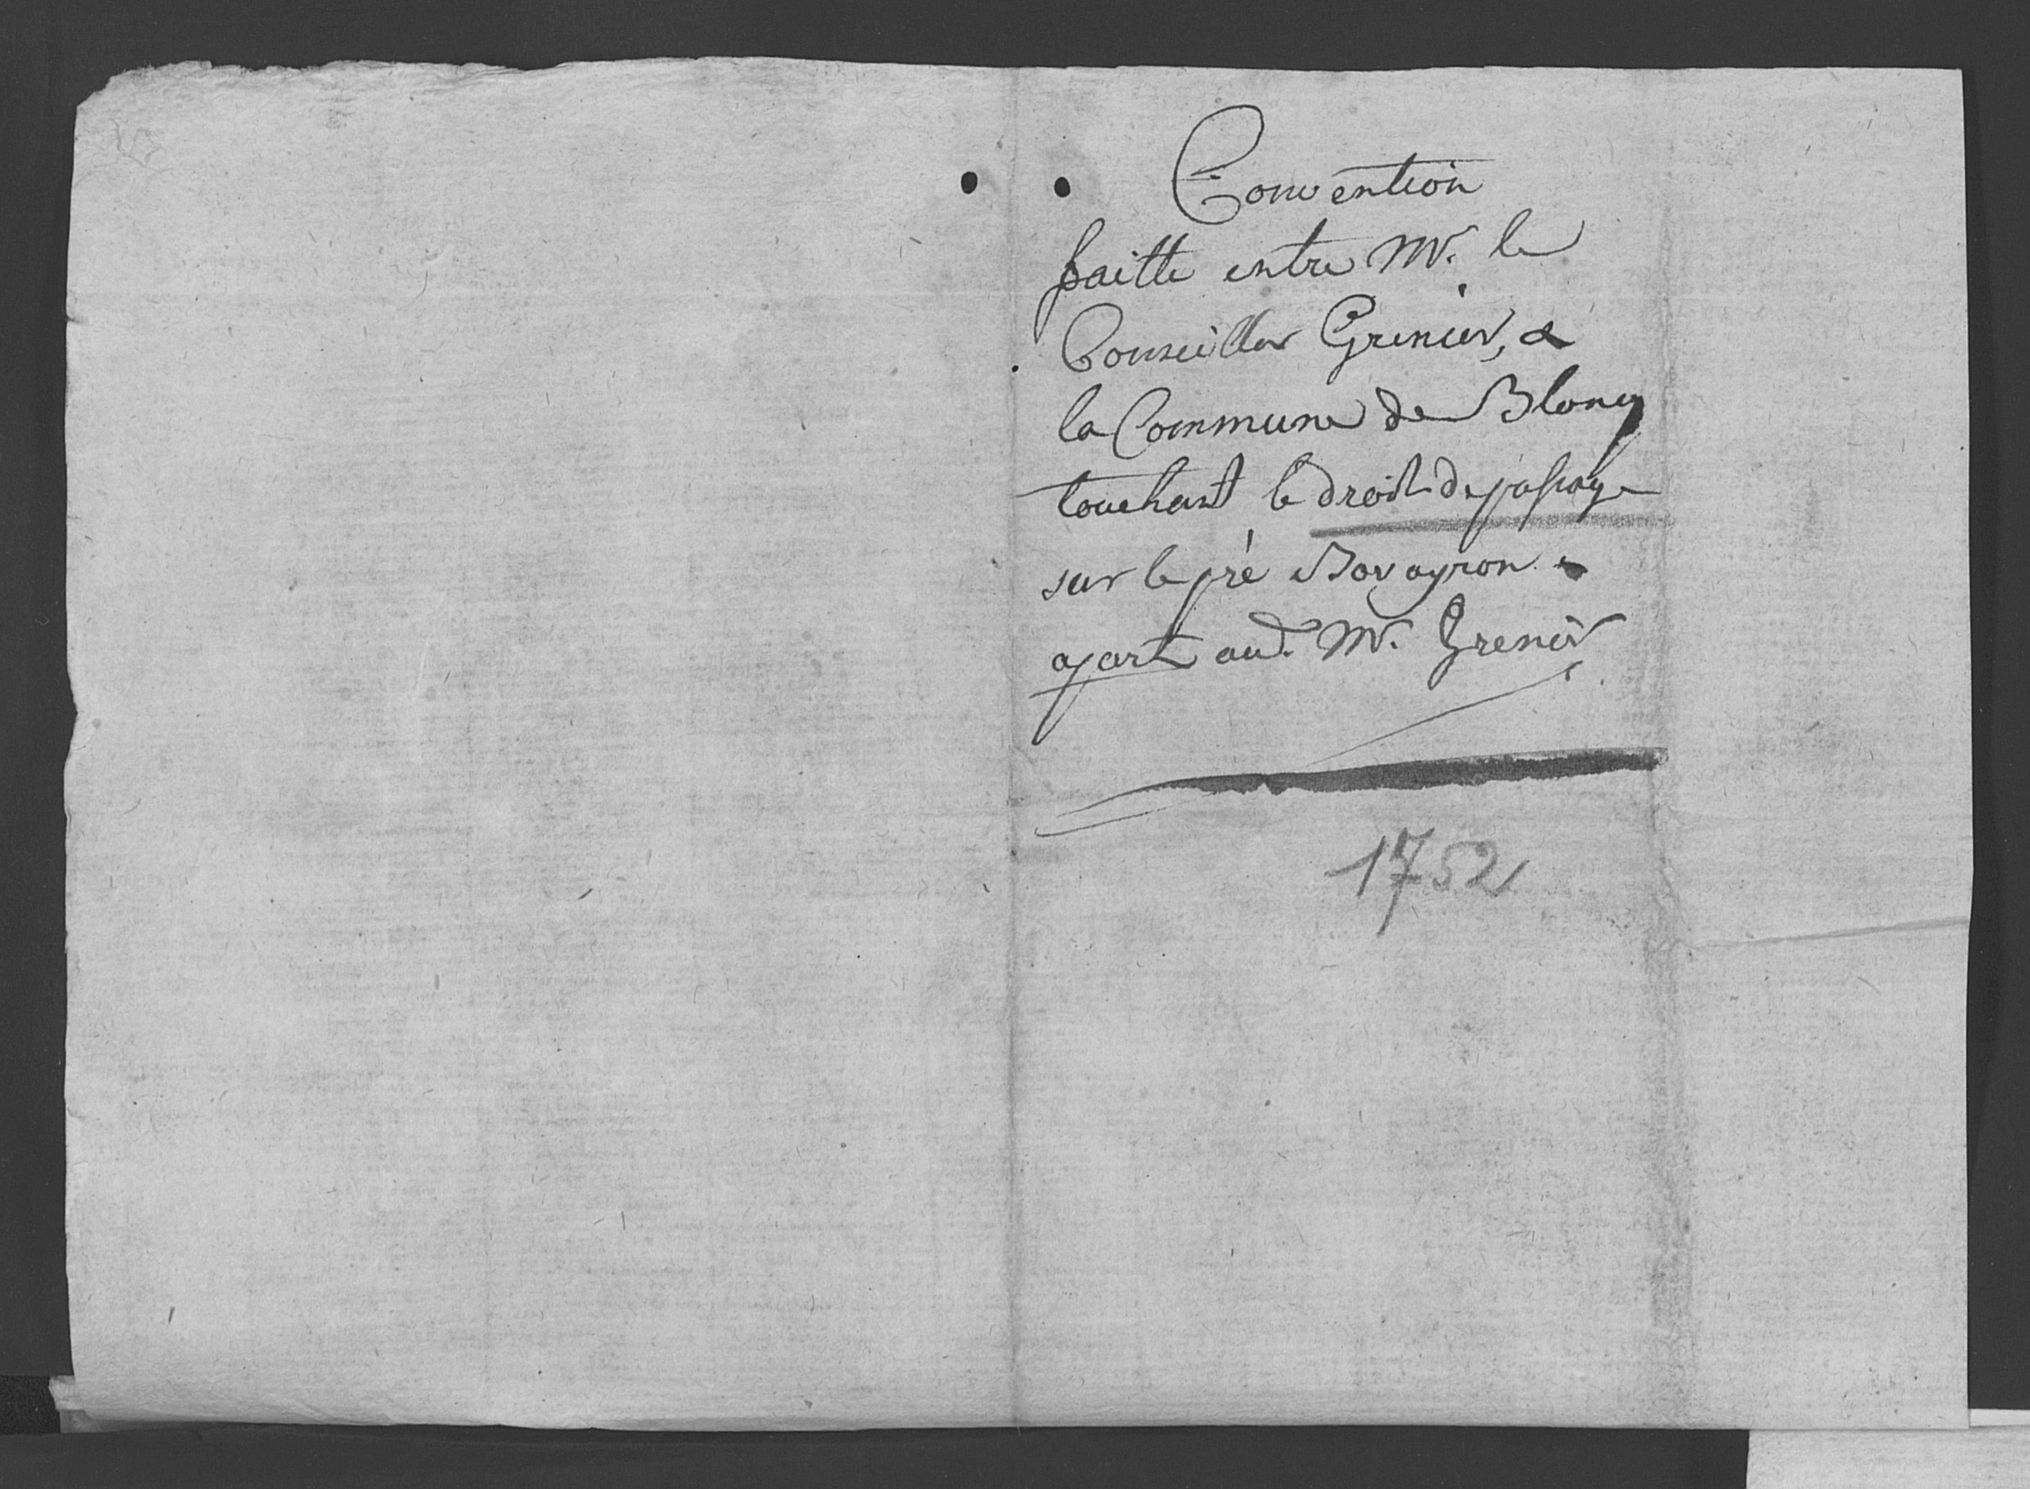 Convention
faitte entre Mr. le
Conseiller Grenier, &
la Commune de Blonay
touchant le droit de passage
sur le pré Bovayron
apart. aud. Mr. Grenier
1752